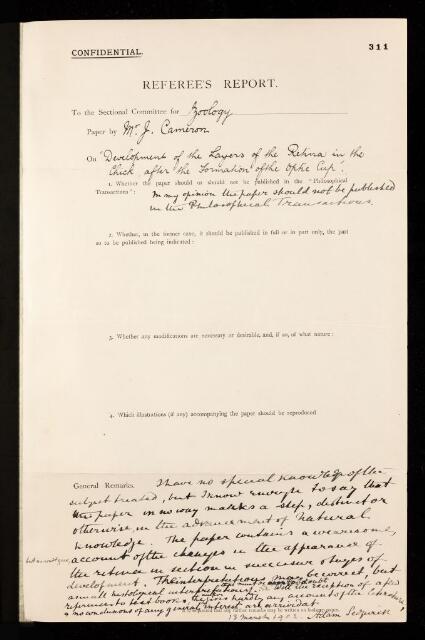 CONFIDENTIAL.
311
REFEREE'S REPORT.
To the Sectional Committee for Zoology
Paper by Mr. J. Cameron
On "Development of the Layers of the Retina in the
Chick after the Formation of the Optic Cup".
1. Whether the paper should or should not be published in the "Philosophical
Transactions": In my opinion the paper should not be published
in the Philosophical Transactions.
2. Whether, in the former case, it should be published in full or in part only, the part
so to be published being indicated:
3. Whether any modifications are necessary or desirable, and, if so, of what nature:
4. Which illustrations (if any) accompanying the paper should be reproduced
General Remarks. I have no special knowledge of the
subject treated, but I know enough to say that
the paper in no way marks a step, distinct or
otherwise, in the advancement of Natural
Knowledge. The paper contains a wearisome,
account of the changes in the appearance of
the retina in section in successive stages of
development. The interpretations may be correct, but
small histological interpretations
& no conclusions of any general interest are arrived at.
13 March 1903. Adam Sedgwick